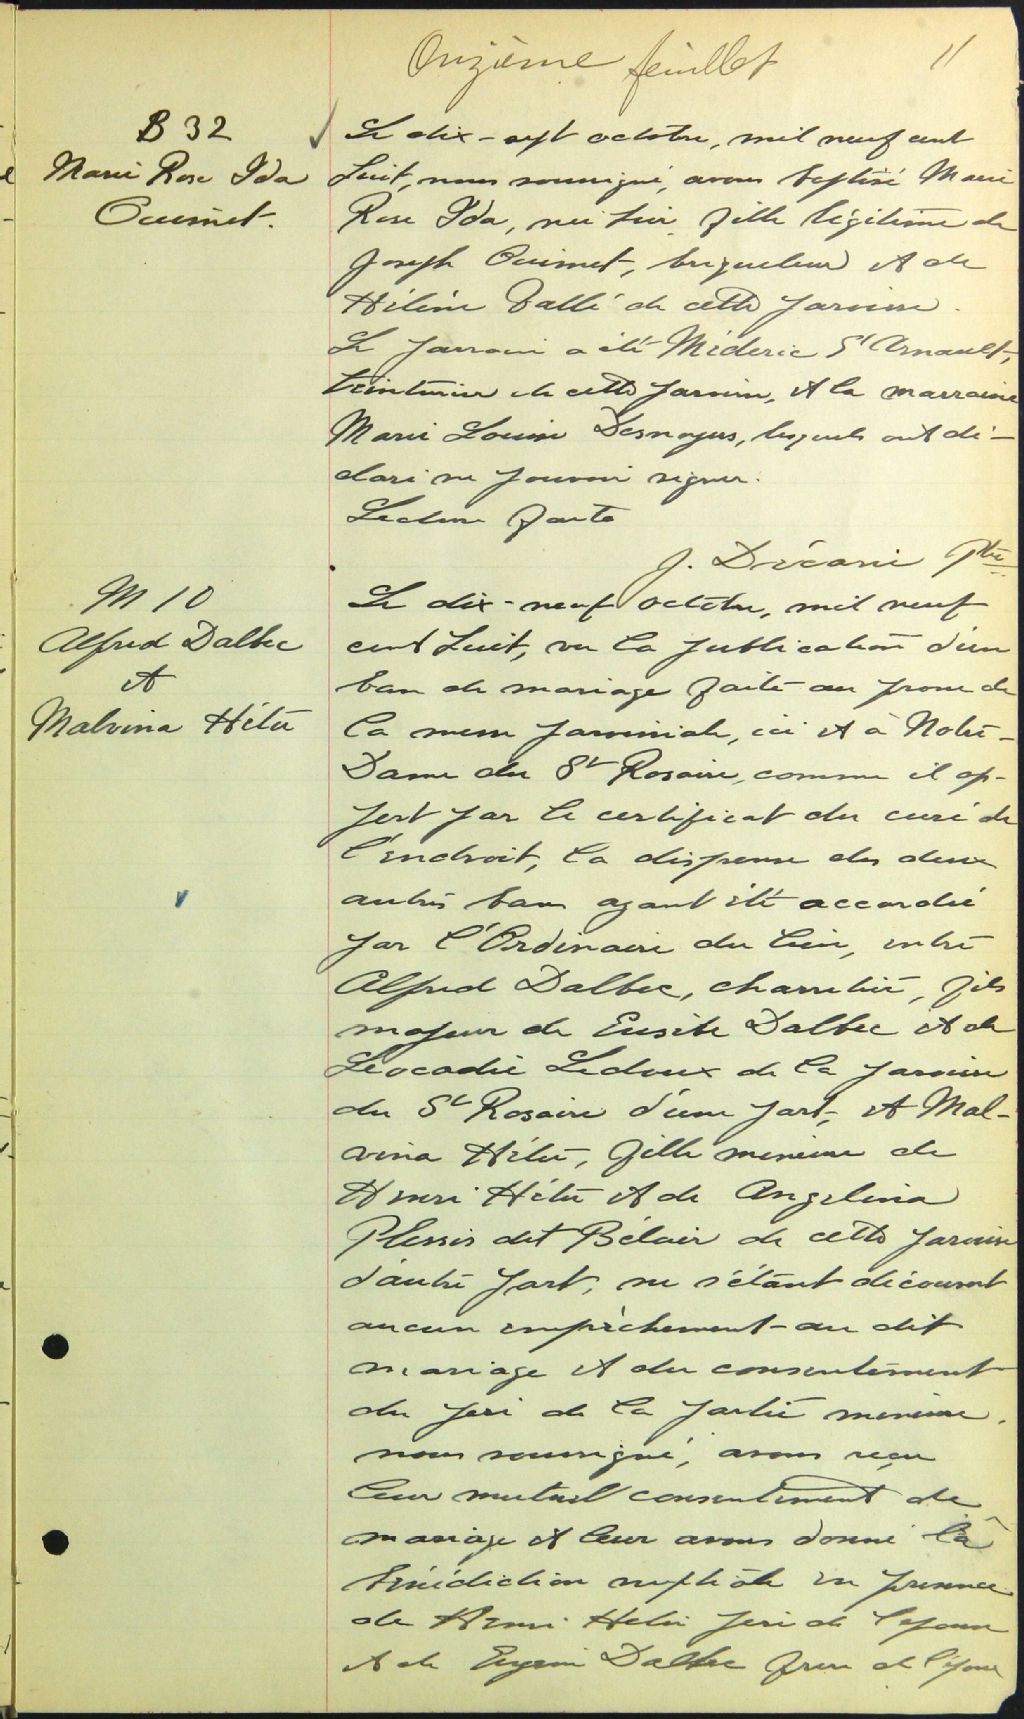 Onzième feuillet 11
B 32
Marie Rose Ida
Ouimet.
Le dix-sept octobre, mil neuf cent
huit, nous soussigné, avons baptisé Marie
Rose Ida, née hier, fille légitime de
Joseph Ouimet, briqueleur et de
Hélène Vallé de cette paroisse.
Le parrain a été Méderic St Arnault,
teinturier de cette paroisse, et la marraine
Marie Louise Desnoyers, lesquels ont dé-
claré ne pouvoir signer.
Lecture faite
J. Décarie Ptre
M 10
Alfred Dalbec
et
Malvina Hétu
Le dix-neuf octobre, mil neuf
cent huit, vu la publication d'un
ban de mariage faite au prône de
la messe paroissiale, ici et à Notre-
Dame du St Rosaire, comme il ap-
pert par le certificat du curé de
l'endroit, la dispense des deux
autres bans ayant été accordée
par l'Ordinaire du lieu, entre
Alfred Dalbec, charretier, fils
majeur de Eusèbe Dalbec et de
Léocadie Ledoux de la paroisse
du St Rosaire d'une part, et Mal-
vina Hétu, fille mineure de
Henri Hétu et de Angelina
Plessis dit Bélair de cette paroisse
d'autre part, ne s'étant découvert
aucun empêchement au dit
mariage et du consentement
du père de la partie mineure,
nous soussigné, avons reçu
leur mutuel consentement de
mariage et leur avons donné la
bénédiction nuptiale en présence
de Henri Hétu père de l'épouse
et de Eugène Dalbec frère de l'époux